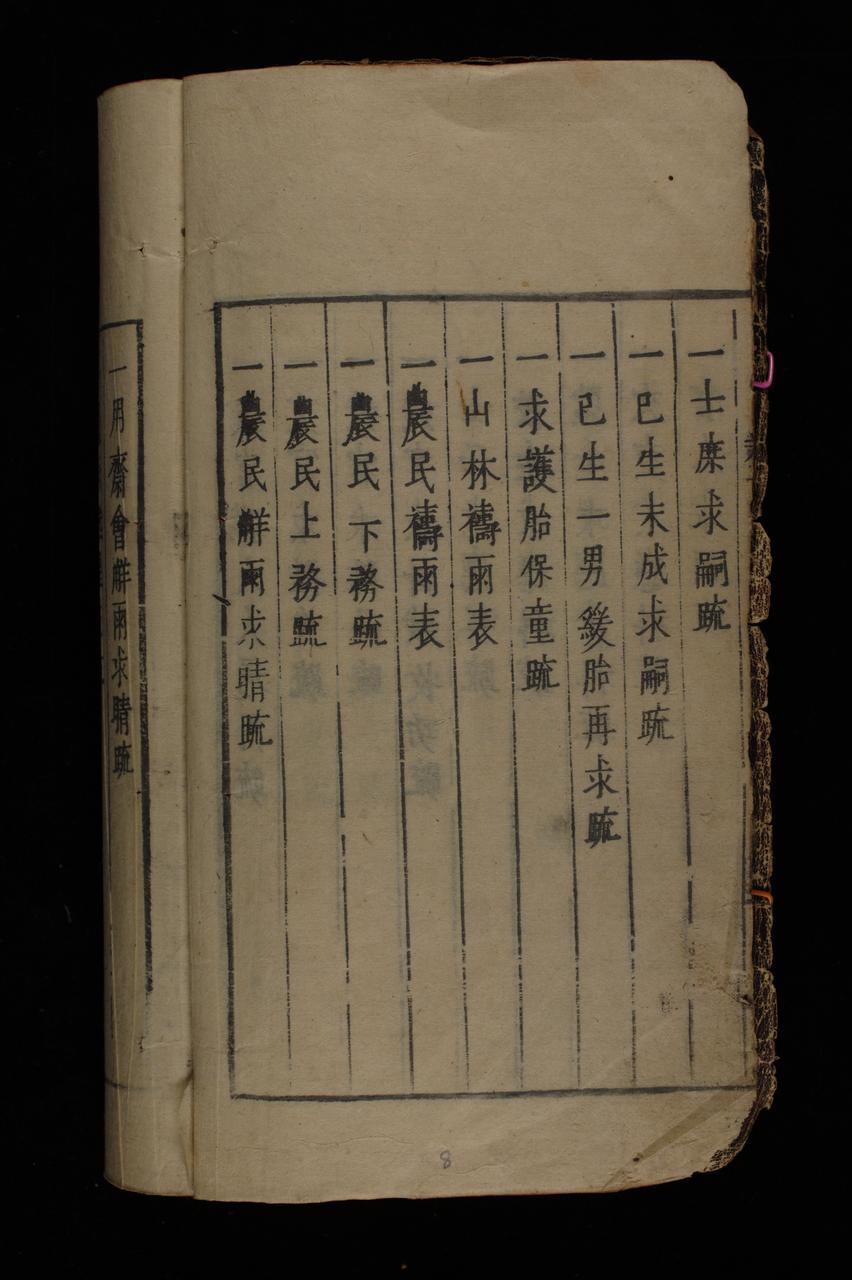 一士庶求嗣疏
一已生未成求嗣疏
一已生一男緩胎再求疏
一求護胎保童疏
一山林禱雨表
一農民禱雨表
一農民下務疏
一農民上務疏
一農民觧雨求晴疏
一用齋會觧雨求晴疏
8